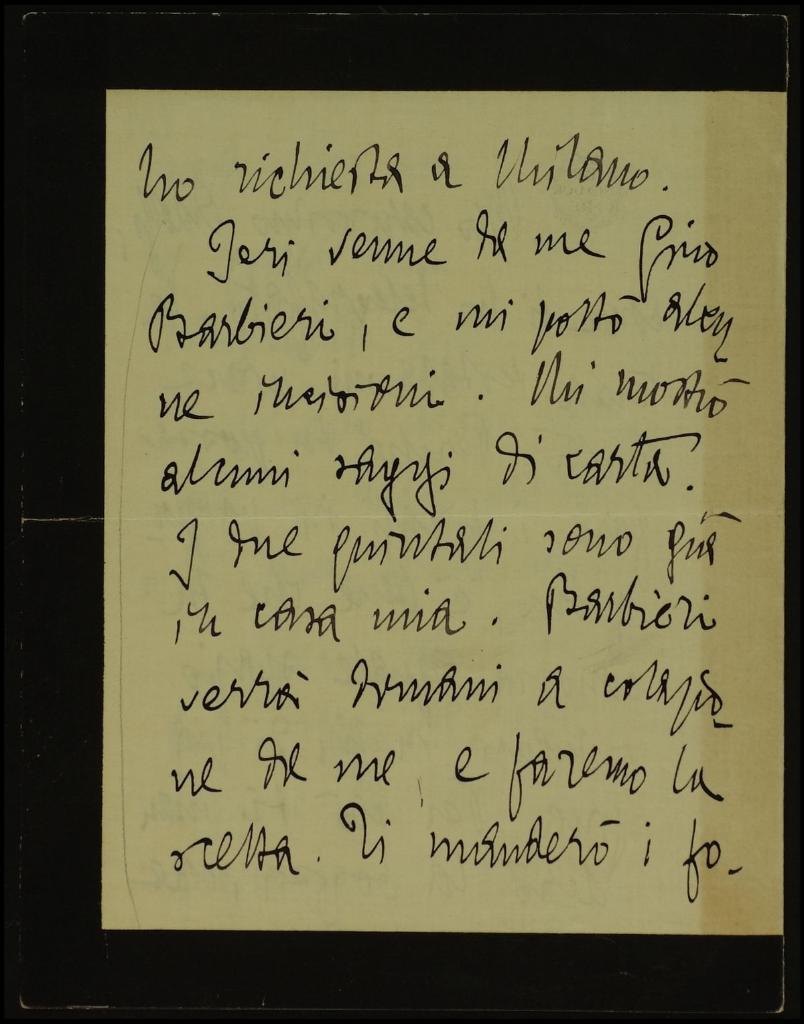 ho richiesta a Milano.
Jeri venne da me Gino
Barbieri, e mi portò alcu-
ne incisioni. Mi mostrò
alcuni saggi di carta.
I due quintali sono già
in casa mia. Barbieri
verrà domani a colazio-
ne da me e faremo la
scelta. Ti manderò i fo-